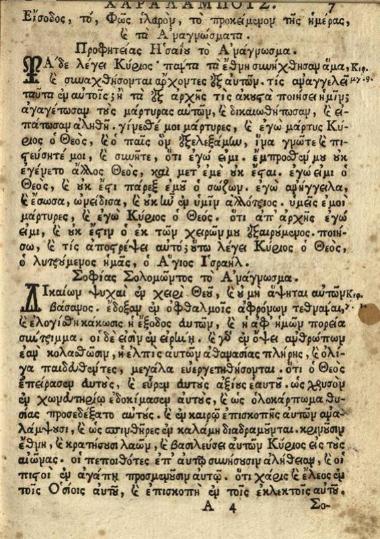 ΧΑΡΑΛΑΜΠΟΥΣ. 7
Εἴσοδος, τό, Φῶς ἱλαρὸν, τὸ προκείμενον τῆς ἡμέρας,
ϗ τὰ Ἀναγνώσματα.
Προφητείας Ἡσαΐου τὸ Ἀνάγνωσμα.
Τάδε λέγει Κύριος· πάντα τὰ ἔθνη συνήχθησαν ἅμα, Κεφ.
ϗ συναχθήσονται ἄρχοντες ἐξ αὐτῶν. τίς ἀναγγελεῖ μγ. 9.
ταῦτα ἐν αὐτοῖς; ἢ τὰ ἐξ ἀρχῆς τίς ἀκουστὰ ποιήσει ἡμῖν;
ἀγαγέτωσαν τοὺς μάρτυρας αὐτῶν, ϗ δικαιωθήτωσαν, ϗ εἰ-
πάτωσαν ἀληθῆ. γίνεσθέ μοι μάρτυρες, ϗ ἐγὼ μάρτυς Κύ-
ριος ὁ Θεὸς, ϗ ὁ παῖς ὃν ἐξελεξάμην, ἵνα γνῶτε ϗ πι-
στεύσητέ μοι, ϗ συνῆτε, ὅτι ἐγώ εἰμι. ἔμπροσθέν μου οὐκ
ἐγένετο ἄλλος Θεὸς, καὶ μετ' ἐμὲ οὐκ ἔσται. ἐγώ εἰμι ὁ
Θεὸς, ϗ οὐκ ἔστι πάρεξ ἐμοῦ ὁ σώζων. ἐγὼ ἀνήγγειλα,
ϗ ἔσωσα, ὠνείδισα, ϗ οὐκ ἦν ἐν ὑμῖν ἀλλότριος. ὑμεῖς ἐμοὶ
μάρτυρες, ϗ ἐγὼ Κύριος ὁ Θεός. ὅτι ἀπ' ἀρχῆς ἐγώ
εἰμι, ϗ οὐκ ἔστιν ὁ ἐκ τῶν χειρῶν μου ἐξαιρούμενος. ποιή-
σω, ϗ τίς ἀποστρέψει αὐτό; οὕτω λέγει Κύριος ὁ Θεὸς,
ὁ λυτρούμενος ἡμᾶς, ὁ Ἅγιος Ἰσραήλ.
Σοφίας Σολομῶντος τὸ Ἀνάγνωσμα.
Δικαίων ψυχαὶ ἐν χειρὶ Θεοῦ, ϗ οὐ μὴ ἅψηται αὐτῶν Κεφ.
βάσανος. ἔδοξαν ἐν ὀφθαλμοῖς ἀφρόνων τεθνάναι,
ϗ ἐλογίσθη κάκωσις ἡ ἔξοδος αὐτῶν, ϗ ἡ ἀφ' ἡμῶν πορεία
σύντριμμα. οἱ δέ εἰσιν ἐν εἰρήνῃ. ϗ γὰρ ἐν ὄψει ἀνθρώπων
ἐὰν κολασθῶσιν, ἡ ἐλπὶς αὐτῶν ἀθανασίας πλήρης, ϗ ὀλί-
γα παιδευθέντες, μεγάλα εὐεργετηθήσονται. ὅτι ὁ Θεὸς
ἐπείρασεν αὐτοὺς, ϗ εὗρεν αὐτοὺς ἀξίους ἑαυτοῦ. ὡς χρυσὸν
ἐν χωνευτηρίῳ ἐδοκίμασεν αὐτοὺς, ϗ ὡς ὁλοκάρπωμα θυ-
σίας προσεδέξατο αὐτούς. ϗ ἐν καιρῷ ἐπισκοπῆς αὐτῶν ἀνα-
λάμψουσι, ϗ ὡς σπινθῆρες ἐν καλάμῃ διαδραμοῦνται. κρινοῦσιν
ἔθνη, ϗ κρατήσουσι λαῶν, ϗ βασιλεύσει αὐτῶν Κύριος εἰς τοὺς
αἰῶνας. οἱ πεποιθότες ἐπ' αὐτῷ συνήσουσιν ἀλήθειαν, ϗ οἱ
πιστοὶ ἐν ἀγάπῃ προσμενοῦσιν αὐτῷ. ὅτι χάρις ϗ ἔλεος ἐν
τοῖς Ὁσίοις αὐτοῦ, ϗ ἐπισκοπὴ ἐν τοῖς ἐκλεκτοῖς αὐτοῦ.
Α 4 Σο-